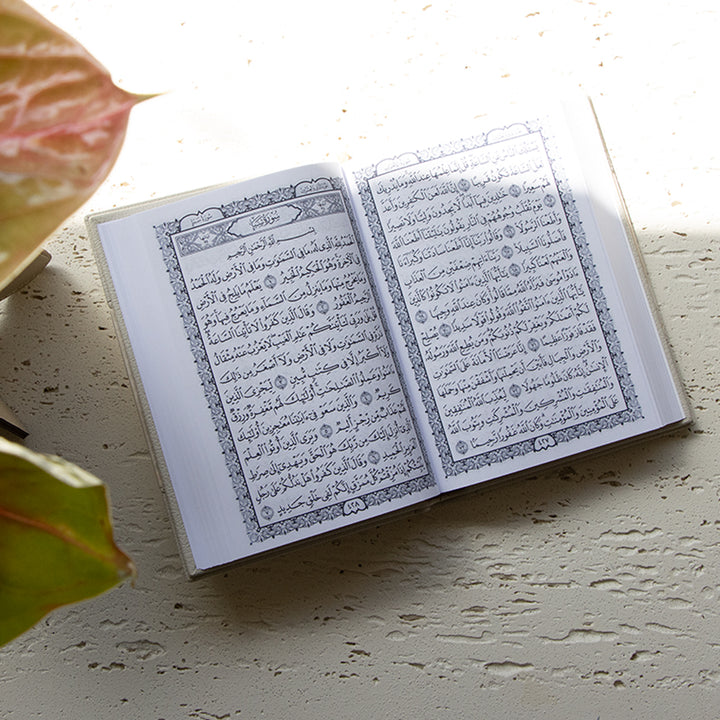 يَسْـَٔلُكَ ٱلنَّاسُ عَنِ ٱلسَّاعَةِ قُلْ إِنَّمَا عِلْمُهَا عِندَ ٱللَّهِ وَمَا يُدْرِيكَ
لَعَلَّ ٱلسَّاعَةَ تَكُونُ قَرِيبًا ٦٣ إِنَّ ٱللَّهَ لَعَنَ ٱلْكَٰفِرِينَ وَأَعَدَّ
لَهُمْ سَعِيرًا ٦٤ خَٰلِدِينَ فِيهَآ أَبَدًا لَّا يَجِدُونَ وَلِيًّا وَلَا نَصِيرًا ٦٥
يَوْمَ تُقَلَّبُ وُجُوهُهُمْ فِى ٱلنَّارِ يَقُولُونَ يَٰلَيْتَنَآ أَطَعْنَا ٱللَّهَ
وَأَطَعْنَا ٱلرَّسُولَا۠ ٦٦ وَقَالُوا۟ رَبَّنَآ إِنَّآ أَطَعْنَا سَادَتَنَا وَكُبَرَآءَنَا
فَأَضَلُّونَا ٱلسَّبِيلَا۠ ٦٧ رَبَّنَآ ءَاتِهِمْ ضِعْفَيْنِ مِنَ ٱلْعَذَابِ
وَٱلْعَنْهُمْ لَعْنًا كَبِيرًا ٦٨ يَٰٓأَيُّهَا ٱلَّذِينَ ءَامَنُوا۟ لَا تَكُونُوا۟ كَٱلَّذِينَ
ءَاذَوْا۟ مُوسَىٰ فَبَرَّأَهُ ٱللَّهُ مِمَّا قَالُوا۟ وَكَانَ عِندَ ٱللَّهِ وَجِيهًا ٦٩
يَٰٓأَيُّهَا ٱلَّذِينَ ءَامَنُوا۟ ٱتَّقُوا۟ ٱللَّهَ وَقُولُوا۟ قَوْلًا سَدِيدًا ٧٠ يُصْلِحْ
لَكُمْ أَعْمَٰلَكُمْ وَيَغْفِرْ لَكُمْ ذُنُوبَكُمْ وَمَن يُطِعِ ٱللَّهَ وَرَسُولَهُۥ
فَقَدْ فَازَ فَوْزًا عَظِيمًا ٧١ إِنَّا عَرَضْنَا ٱلْأَمَانَةَ عَلَى ٱلسَّمَٰوَٰتِ
وَٱلْأَرْضِ وَٱلْجِبَالِ فَأَبَيْنَ أَن يَحْمِلْنَهَا وَأَشْفَقْنَ مِنْهَا وَحَمَلَهَا
ٱلْإِنسَٰنُ إِنَّهُۥ كَانَ ظَلُومًا جَهُولًا ٧٢ لِّيُعَذِّبَ ٱللَّهُ ٱلْمُنَٰفِقِينَ
وَٱلْمُنَٰفِقَٰتِ وَٱلْمُشْرِكِينَ وَٱلْمُشْرِكَٰتِ وَيَتُوبَ ٱللَّهُ
عَلَى ٱلْمُؤْمِنِينَ وَٱلْمُؤْمِنَٰتِ وَكَانَ ٱللَّهُ غَفُورًا رَّحِيمًۢا ٧٣
٤٢٧
سُورَةُ سَبَإٍ
بِسْمِ ٱللَّهِ ٱلرَّحْمَٰنِ ٱلرَّحِيمِ
ٱلْحَمْدُ لِلَّهِ ٱلَّذِى لَهُۥ مَا فِى ٱلسَّمَٰوَٰتِ وَمَا فِى ٱلْأَرْضِ وَلَهُ ٱلْحَمْدُ
فِى ٱلْءَاخِرَةِ وَهُوَ ٱلْحَكِيمُ ٱلْخَبِيرُ ١ يَعْلَمُ مَا يَلِجُ فِى ٱلْأَرْضِ
وَمَا يَخْرُجُ مِنْهَا وَمَا يَنزِلُ مِنَ ٱلسَّمَآءِ وَمَا يَعْرُجُ فِيهَا وَهُوَ
ٱلرَّحِيمُ ٱلْغَفُورُ ٢ وَقَالَ ٱلَّذِينَ كَفَرُوا۟ لَا تَأْتِينَا ٱلسَّاعَةُ
قُلْ بَلَىٰ وَرَبِّى لَتَأْتِيَنَّكُمْ عَٰلِمِ ٱلْغَيْبِ لَا يَعْزُبُ عَنْهُ مِثْقَالُ
ذَرَّةٍ فِى ٱلسَّمَٰوَٰتِ وَلَا فِى ٱلْأَرْضِ وَلَآ أَصْغَرُ مِن ذَٰلِكَ
وَلَآ أَكْبَرُ إِلَّا فِى كِتَٰبٍ مُّبِينٍ ٣ لِّيَجْزِىَ ٱلَّذِينَ
ءَامَنُوا۟ وَعَمِلُوا۟ ٱلصَّٰلِحَٰتِ أُو۟لَٰٓئِكَ لَهُم مَّغْفِرَةٌ وَرِزْقٌ
كَرِيمٌ ٤ وَٱلَّذِينَ سَعَوْ فِىٓ ءَايَٰتِنَا مُعَٰجِزِينَ أُو۟لَٰٓئِكَ
لَهُمْ عَذَابٌ مِّن رِّجْزٍ أَلِيمٌ ٥ وَيَرَى ٱلَّذِينَ أُوتُوا۟ ٱلْعِلْمَ
ٱلَّذِىٓ أُنزِلَ إِلَيْكَ مِن رَّبِّكَ هُوَ ٱلْحَقَّ وَيَهْدِىٓ إِلَىٰ صِرَٰطِ
ٱلْعَزِيزِ ٱلْحَمِيدِ ٦ وَقَالَ ٱلَّذِينَ كَفَرُوا۟ هَلْ نَدُلُّكُمْ عَلَىٰ رَجُلٍ
يُنَبِّئُكُمْ إِذَا مُزِّقْتُمْ كُلَّ مُمَزَّقٍ إِنَّكُمْ لَفِى خَلْقٍ جَدِيدٍ ٧
٤٢٨